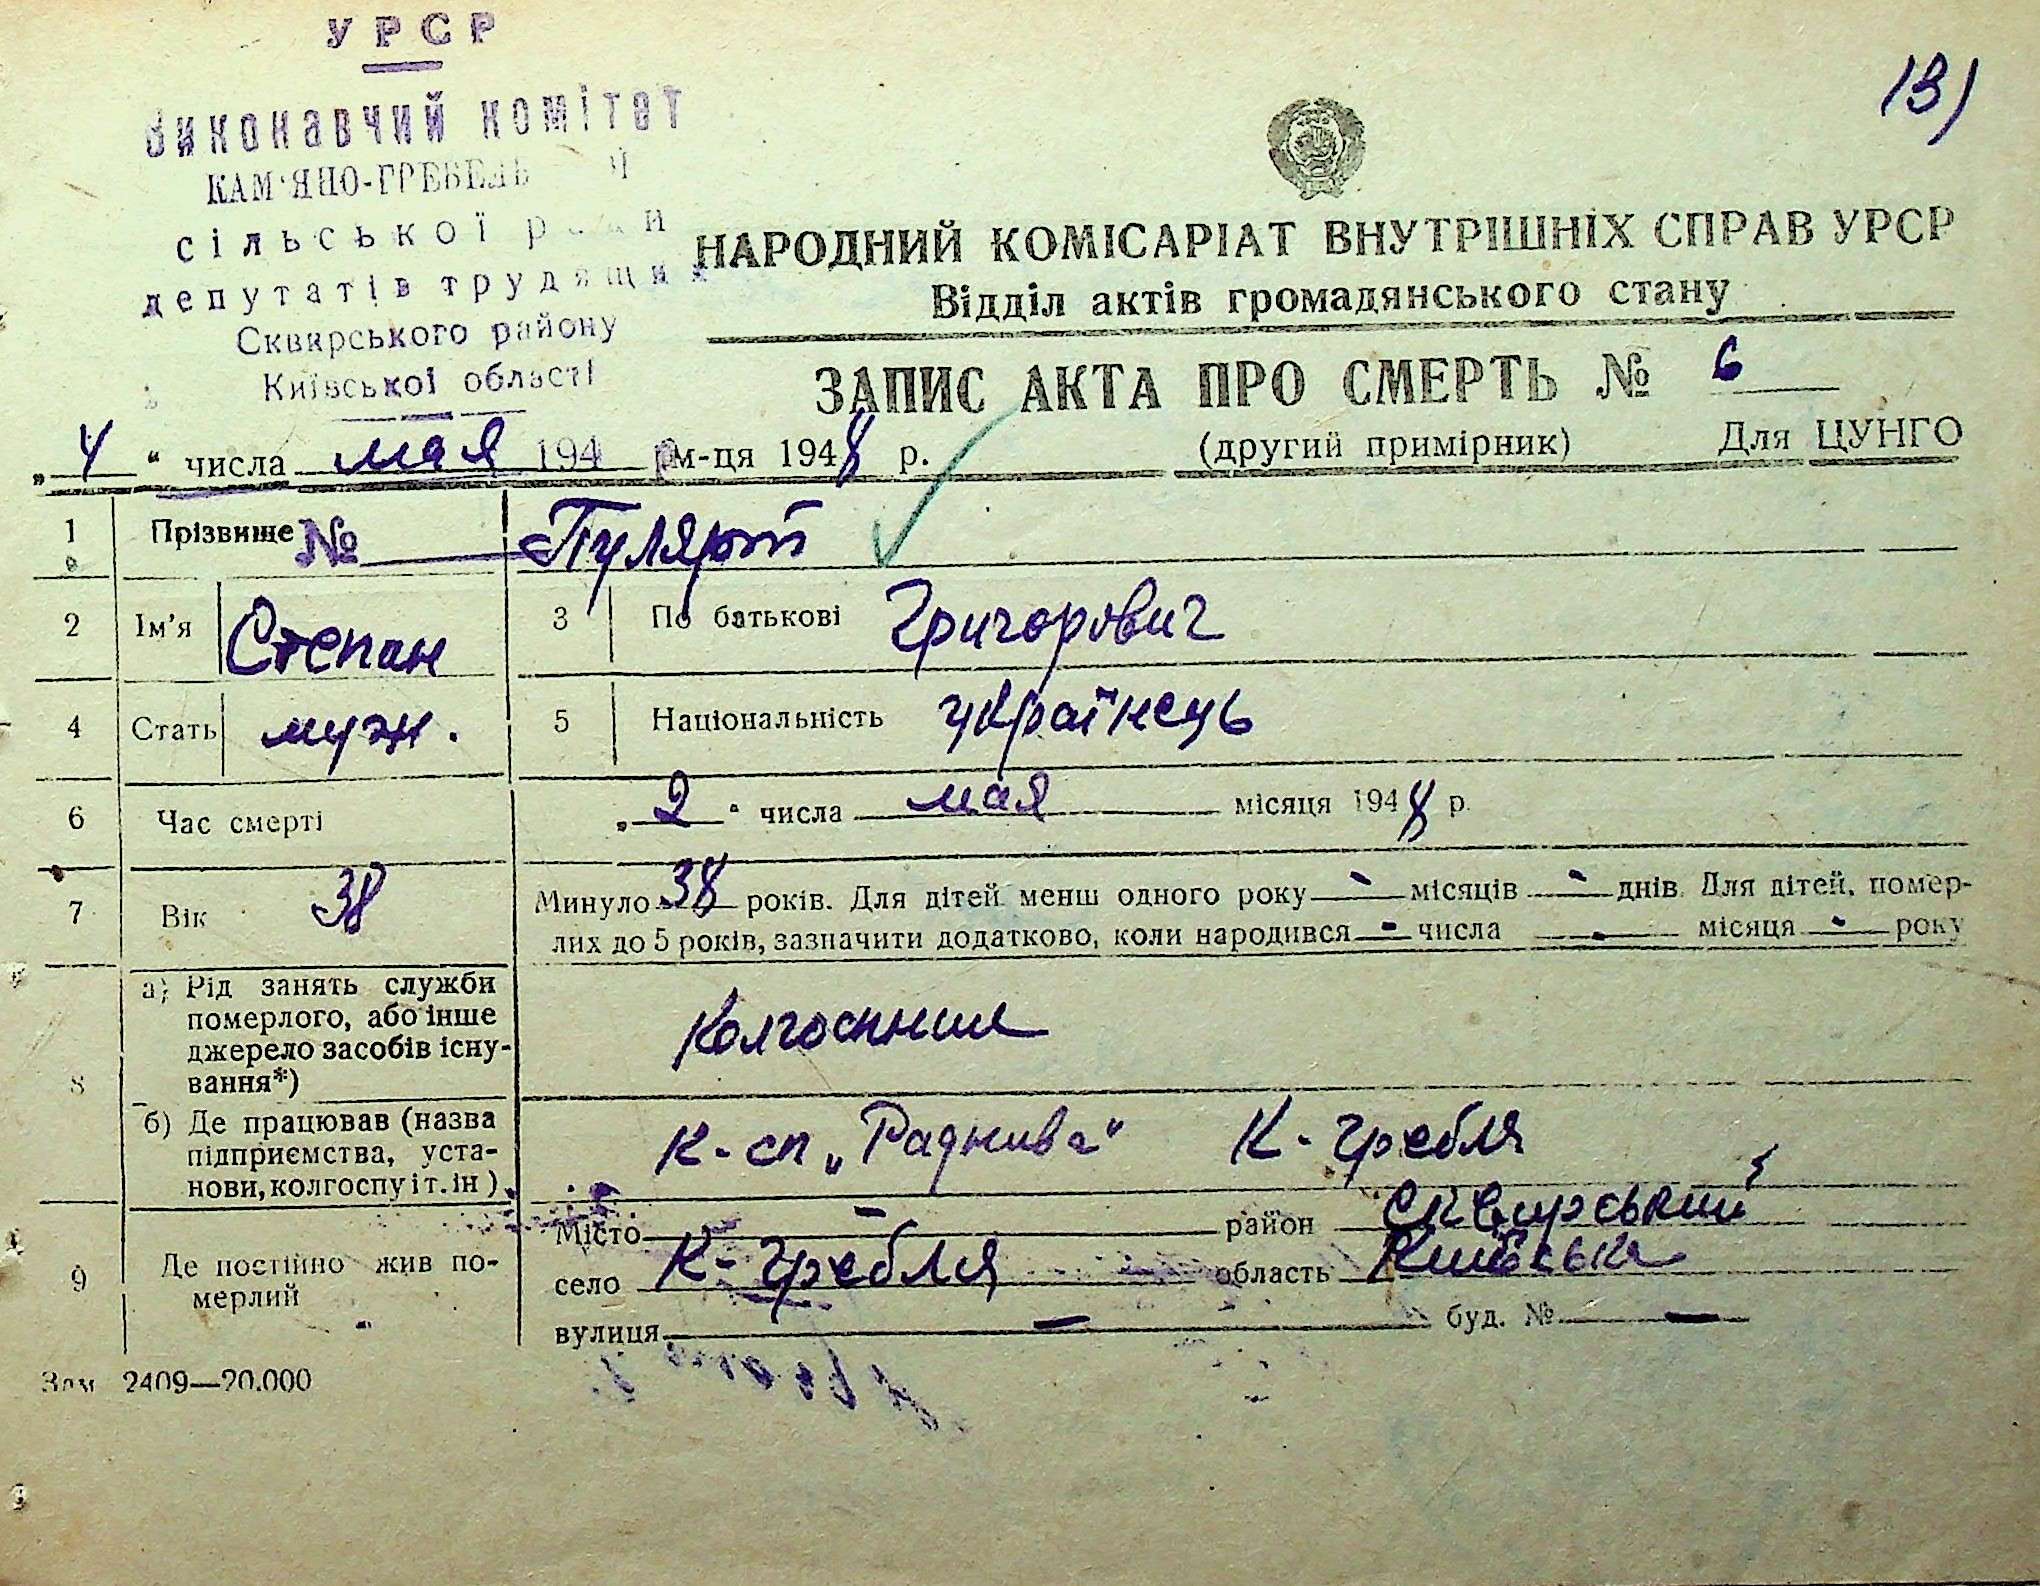 УРСР
Виконавчий комітет
КАМ'ЯНО-ГРЕБЕЛЬ
сільської ради
депутатів трудящих
Сквирського району
Київської області
13)
НАРОДНИЙ КОМІСАРІАТ ВНУТРІШНІХ СПРАВ УРСР
Відділ актів громадянського стану
ЗАПИС АКТА ПРО СМЕРТЬ № 6
„4“ числа мая 194 р м-ця 1948 р. (другий примірник) Для ЦУНГО
1 Прізвище №
2 Ім'я Степан 3 По батькові Григорович
4 Стать муж. 5 Національність українець
6 Час смерті „2“ числа мая місяця 1948 р.
7 Вік 38 Минуло 38 років. Для дітей менш одного року - місяців - днів. Для дітей, помер-
лих до 5 років, зазначити додатково, коли народився - числа - місяця - року
8 а) Рід занять служби
померлого, або інше
джерело засобів існу-
вання*)
Колгоспник
б) Де працював (назва
підприємства, уста-
нови, колгоспу і т. ін.)
К-сп „Раднива“ К-Гребля
9 Де постійно жив по-
мерлий
Місто - район Сквирський
село К-Гребля область Київська
вулиця — буд. № —
Зам. 2409—20.000